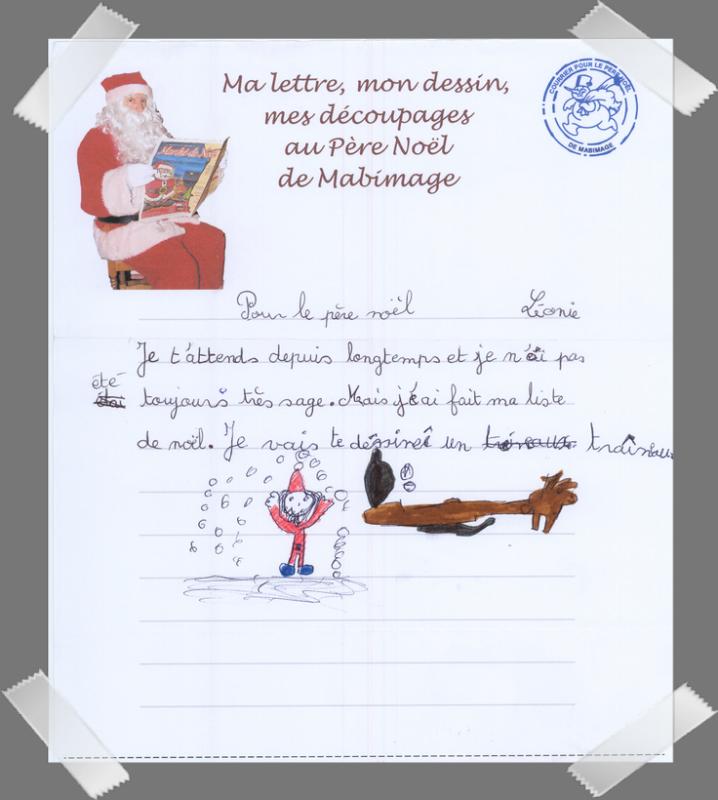 Ma lettre, mon dessin,
mes découpages
au Père Noël
de Mabimage
COURRIER POUR LE PERE NOËL
DE MABIMAGE
Marché de Noël
Pour le père noël Léonie
Je t'attends depuis longtemps et je n'ai pas
été
toujours très sage. Mais j'ai fait ma liste
de noël. Je vais te déssinei un traîneau